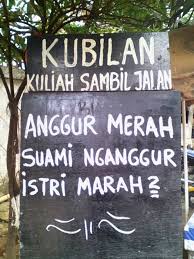 KUBILAN
KULIAH SAMBIL JALAN
ANGGUR MERAH
SUAMI NGANGGUR
ISTRI MARAH?